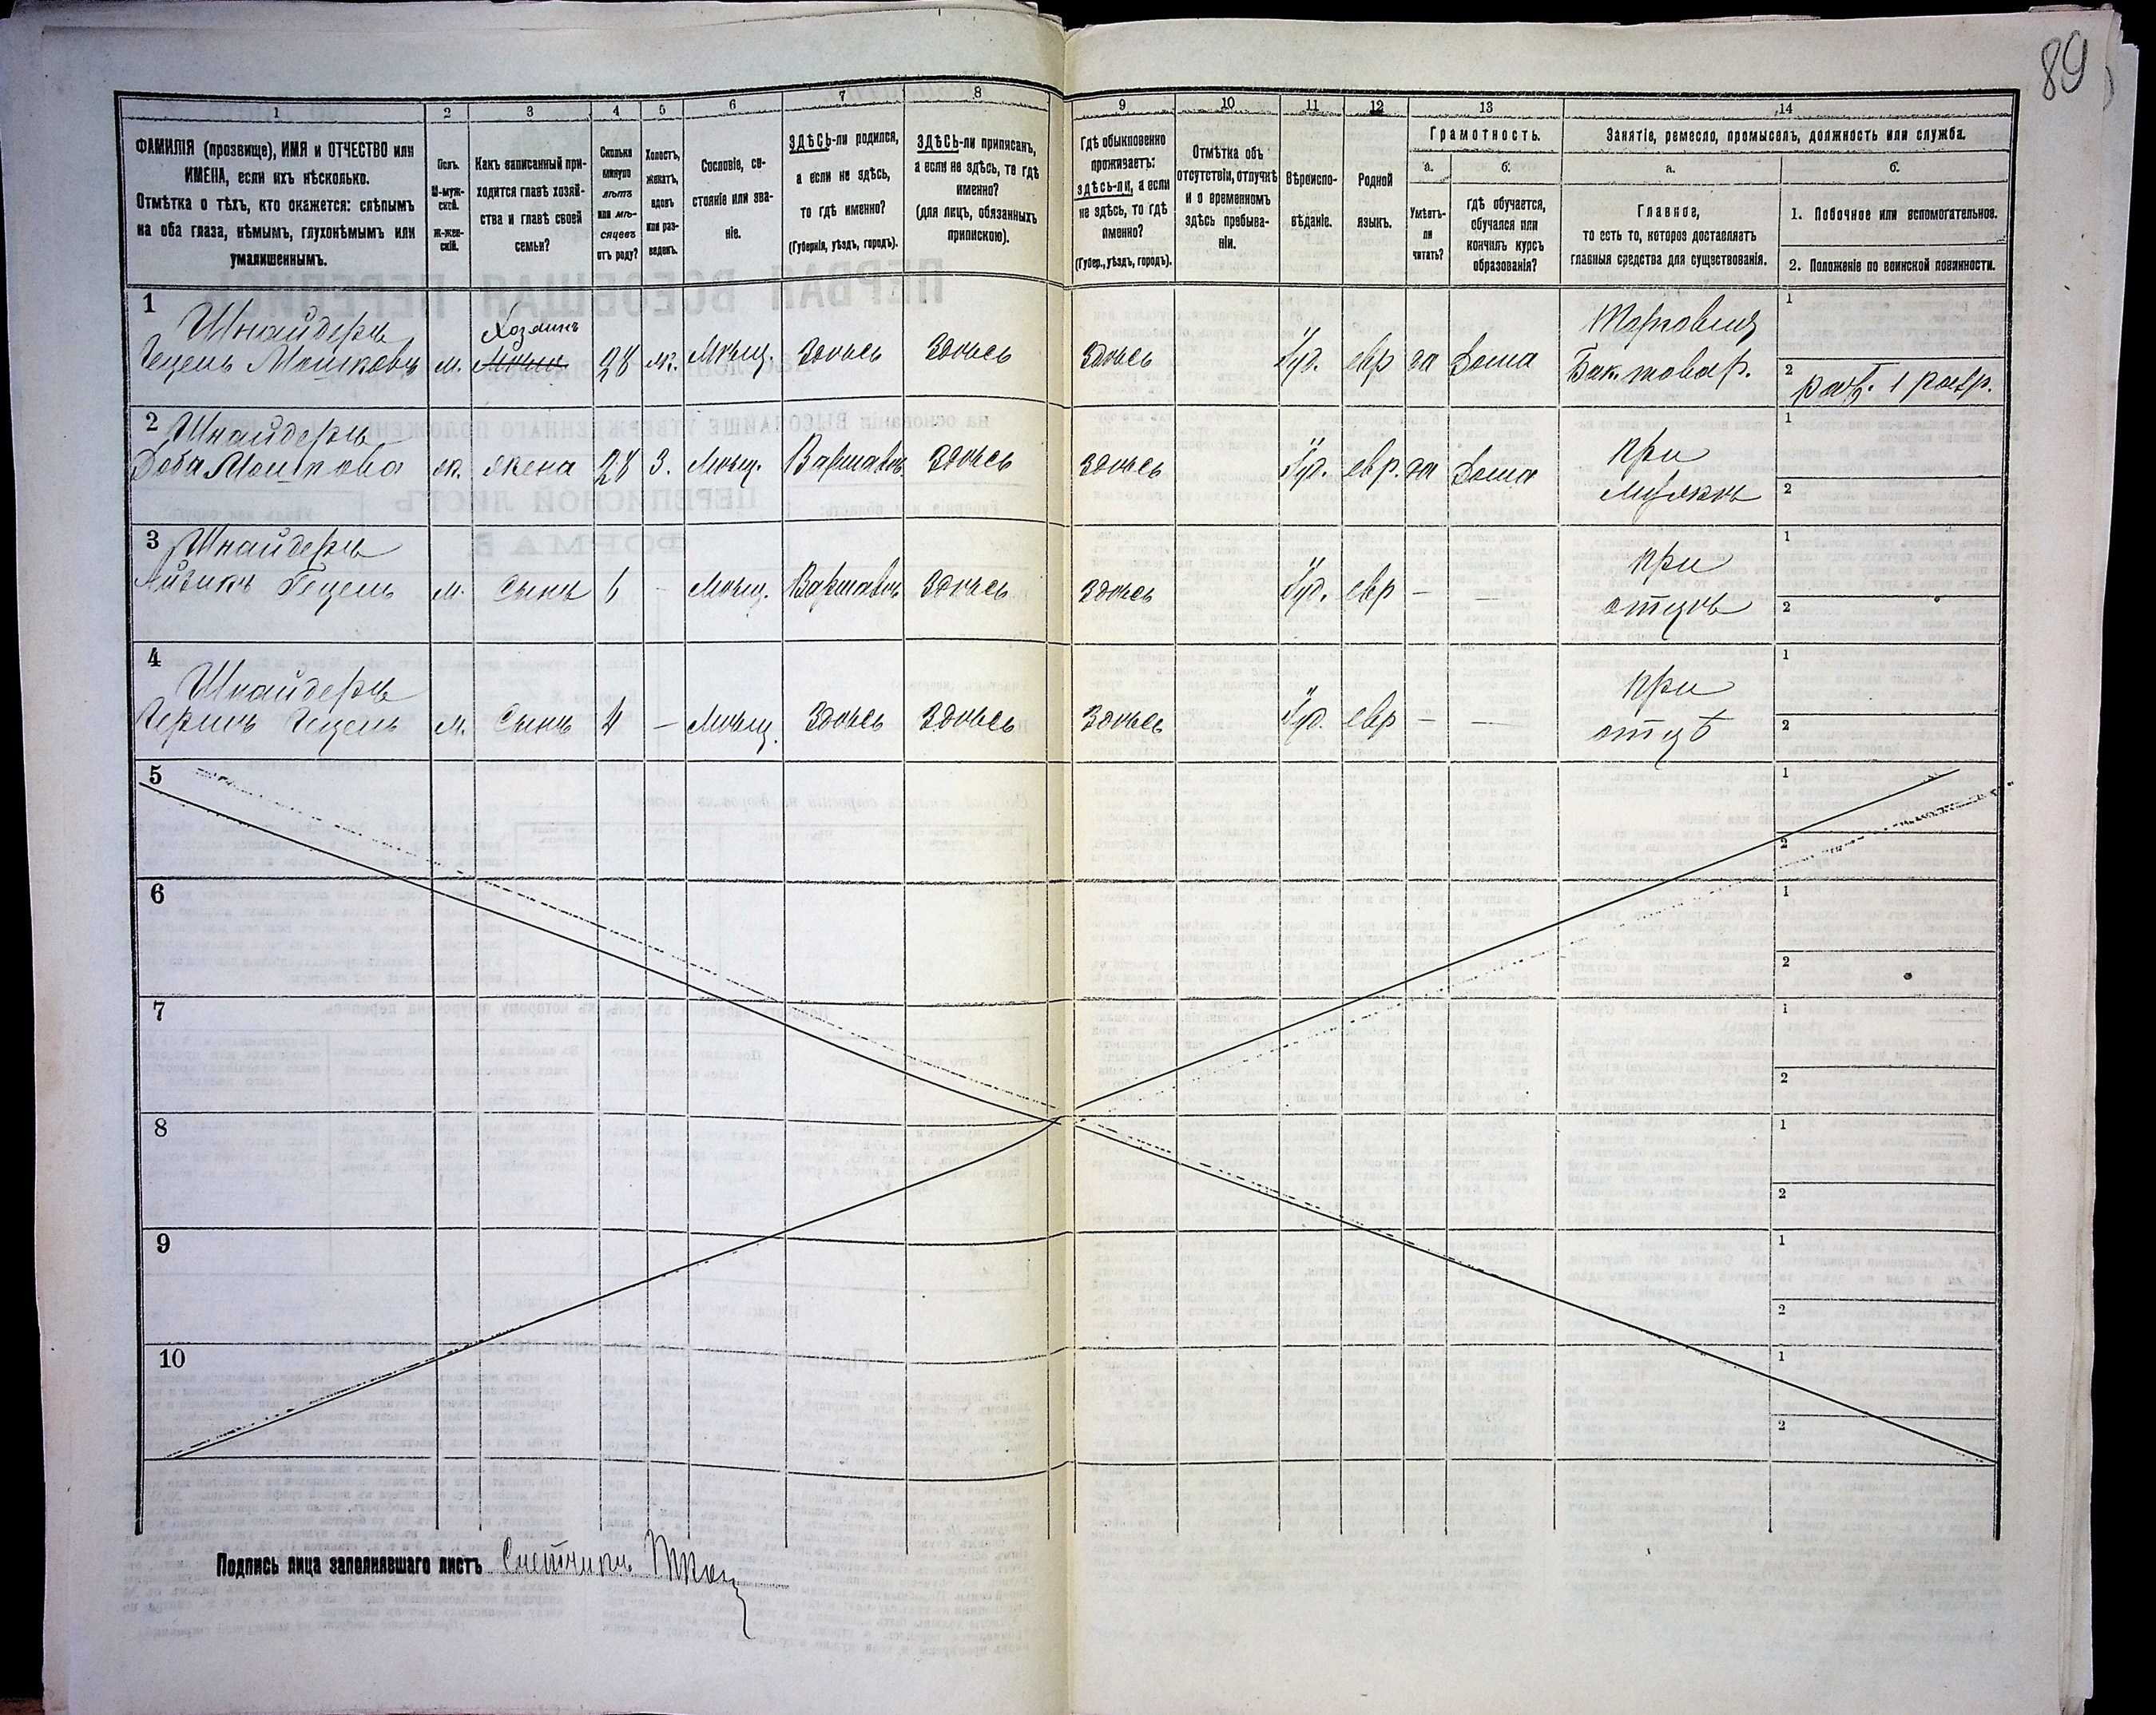 89
1 2 3 4 5 6 7 8 9 10 11 12 13 14
ФАМИЛІЯ (прозвище), ИМЯ и ОТЧЕСТВО или
ИМЕНА, если ихъ нѣсколько.
Отмѣтка о тѣхъ, кто окажется: слѣпымъ
на оба глаза, нѣмымъ, глухонѣмымъ или
умалишеннымъ.
Полъ.
М-муж-
ской.
Ж-жен-
скій.
Какъ записанный при-
ходится главѣ хозяй-
ства и главѣ своей
семьи?
Сколько
минуло
лѣтъ
или мѣ-
сяцевъ
отъ роду?
Холостъ,
женатъ,
вдовъ
или раз-
веденъ.
Сословіе, со-
стояніе или зва-
ніе.
ЗДѢСЬ-ли родился,
а если не здѣсь,
то гдѣ именно?
(Губернія, уѣздъ, городъ).
ЗДѢСЬ-ли приписанъ,
а если не здѣсь, то гдѣ
именно?
(для лицъ, обязанныхъ
припискою).
Гдѣ обыкновенно
проживаетъ:
здѣсь-ли, а если
не здѣсь, то гдѣ
именно?
(Губер., уѣздъ, городъ).
Отмѣтка объ
отсутствіи, отлучкѣ
и о временномъ
здѣсь пребыва-
ніи.
Вѣроиспо-
вѣданіе.
Родной
языкъ.
Грамотность.
а.
Умѣетъ-
ли
читать?
б.
гдѣ обучается,
обучался или
кончилъ курсъ
образованія?
Занятіе, ремесло, промыселъ, должность или служба.
а.
Главное,
то есть то, которое доставляетъ
главныя средства для существованія.
б.
1. Побочное или вспомогательное.
2. Положеніе по воинской повинности.
1
Шнайдеръ
Гецель Мошковъ м. Хозяинъ 28 ж. Мѣщ. Здѣсь Здѣсь Здѣсь Іуд. евр да Дома
Торговля
Бак. товар.
1
2
2
Шнайдеръ
Доба Мошкова ж. жена 28 з. Мѣщ. Варшава Здѣсь Здѣсь Іуд. евр. да Дома
при
мужѣ
1
2
3
Шнайдеръ
Айзикъ Гецель м. Сынъ 6 - Мѣщ. Варшава Здѣсь Здѣсь Іуд. евр - -
при
отцѣ
1
2
4
Шнайдеръ
Гецель м. Сынъ 4 - Мѣщ. Здѣсь Здѣсь Здѣсь Іуд. евр - -
при
отцѣ
1
2
5
1
2
6
1
2
7
1
2
8
1
2
9
1
2
10
1
2
Подпись лица заполнявшаго листъ Счетчикъ